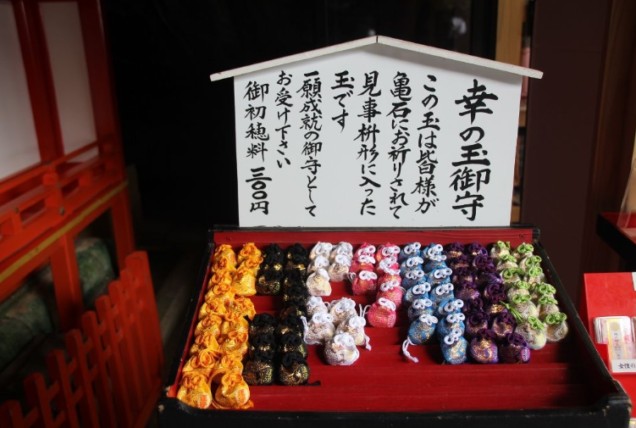 幸の玉御守
この玉は皆様が
亀石にお祈りされて
見事枡形に入った
玉です
一願成就の御守として
お受け下さい
御初穂料 三〇〇円